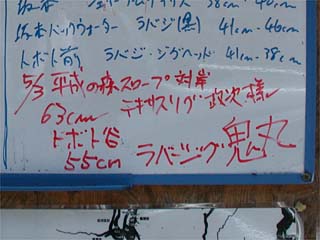 坂本バックウォーター ラバジ(黒) 41cm・46cm
トボト前 ラバジ・ジグヘッド 41cm・38cm
5/3 平成の森スロープ対岸
63cm テキサスリグ 政次様
トボト谷
55cm ラバージグ 鬼丸